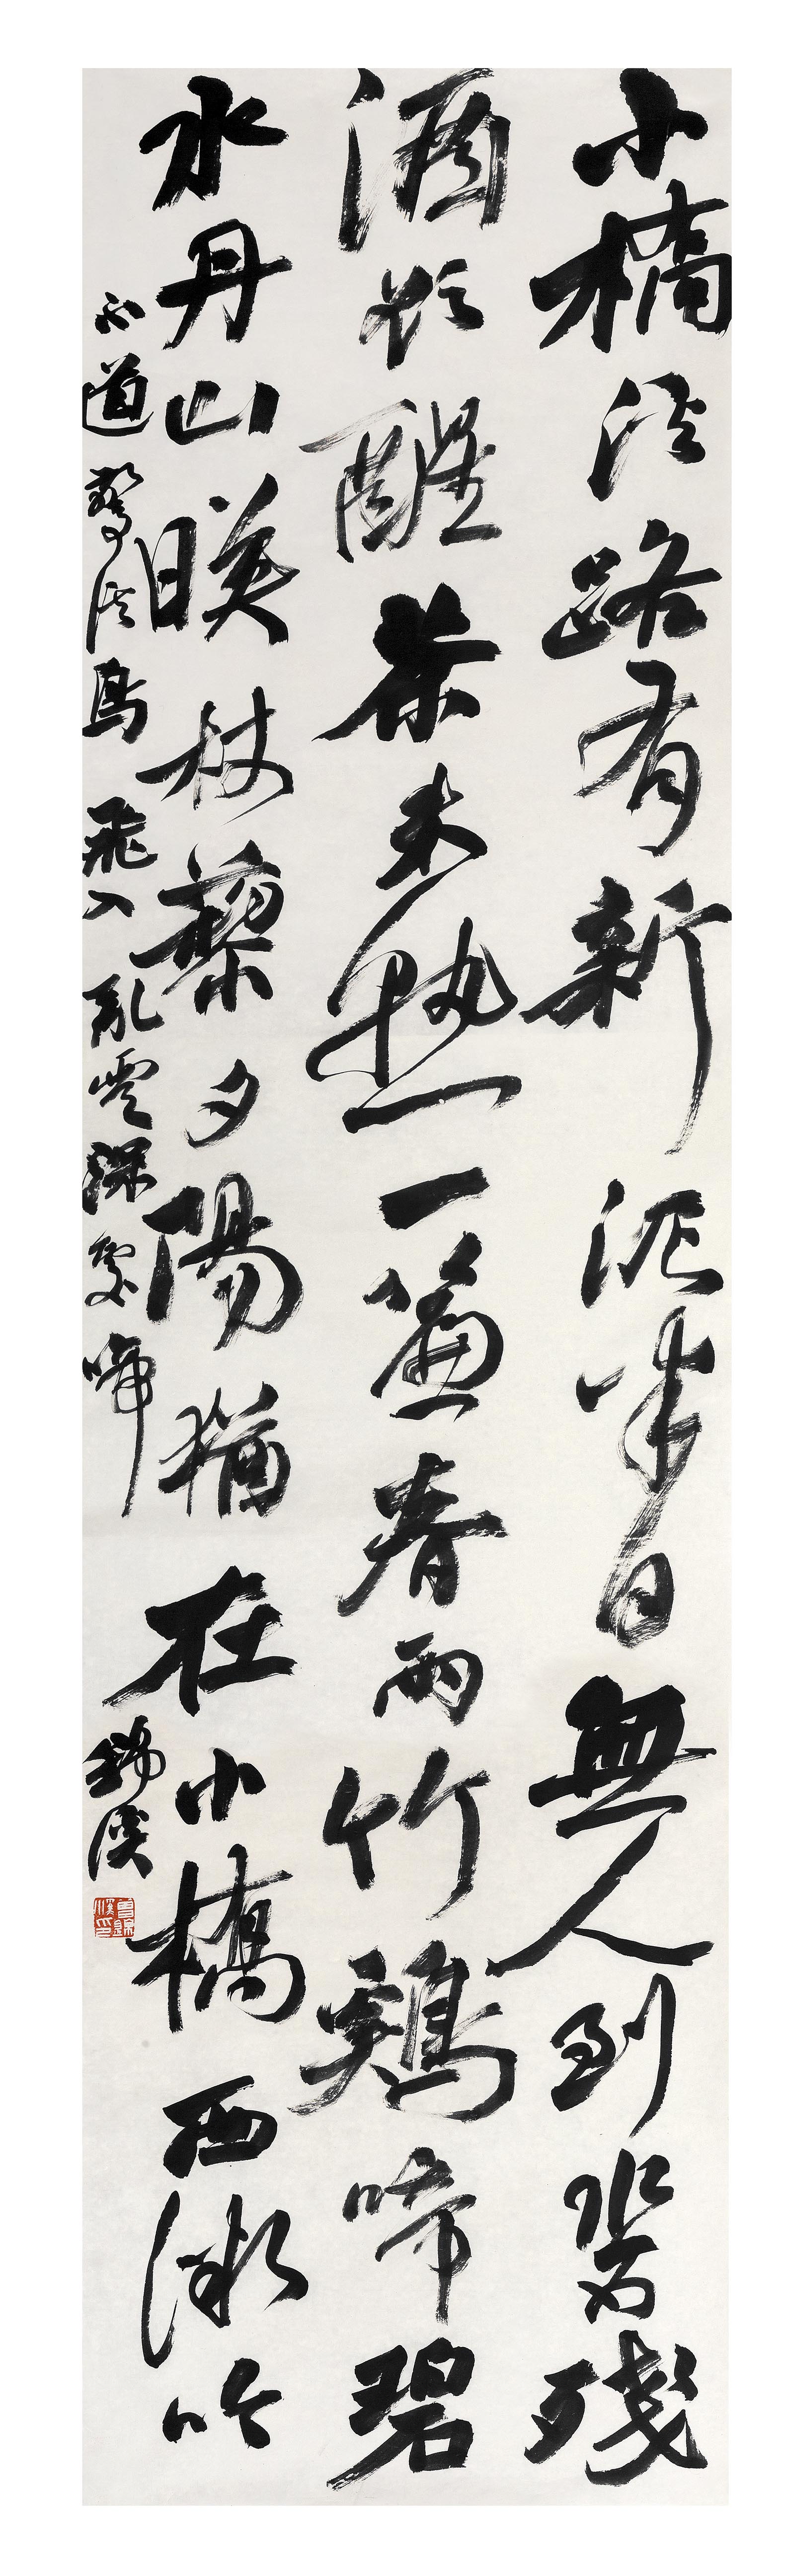 小橋溪路有新泥半日無人到水西殘
酒欲醒茶未熟一簾春雨竹鷄啼碧
水丹山映杖藜夕陽猶在小橋西微吟
不道驚溪鳥飛入亂雲深處啼
錦漢